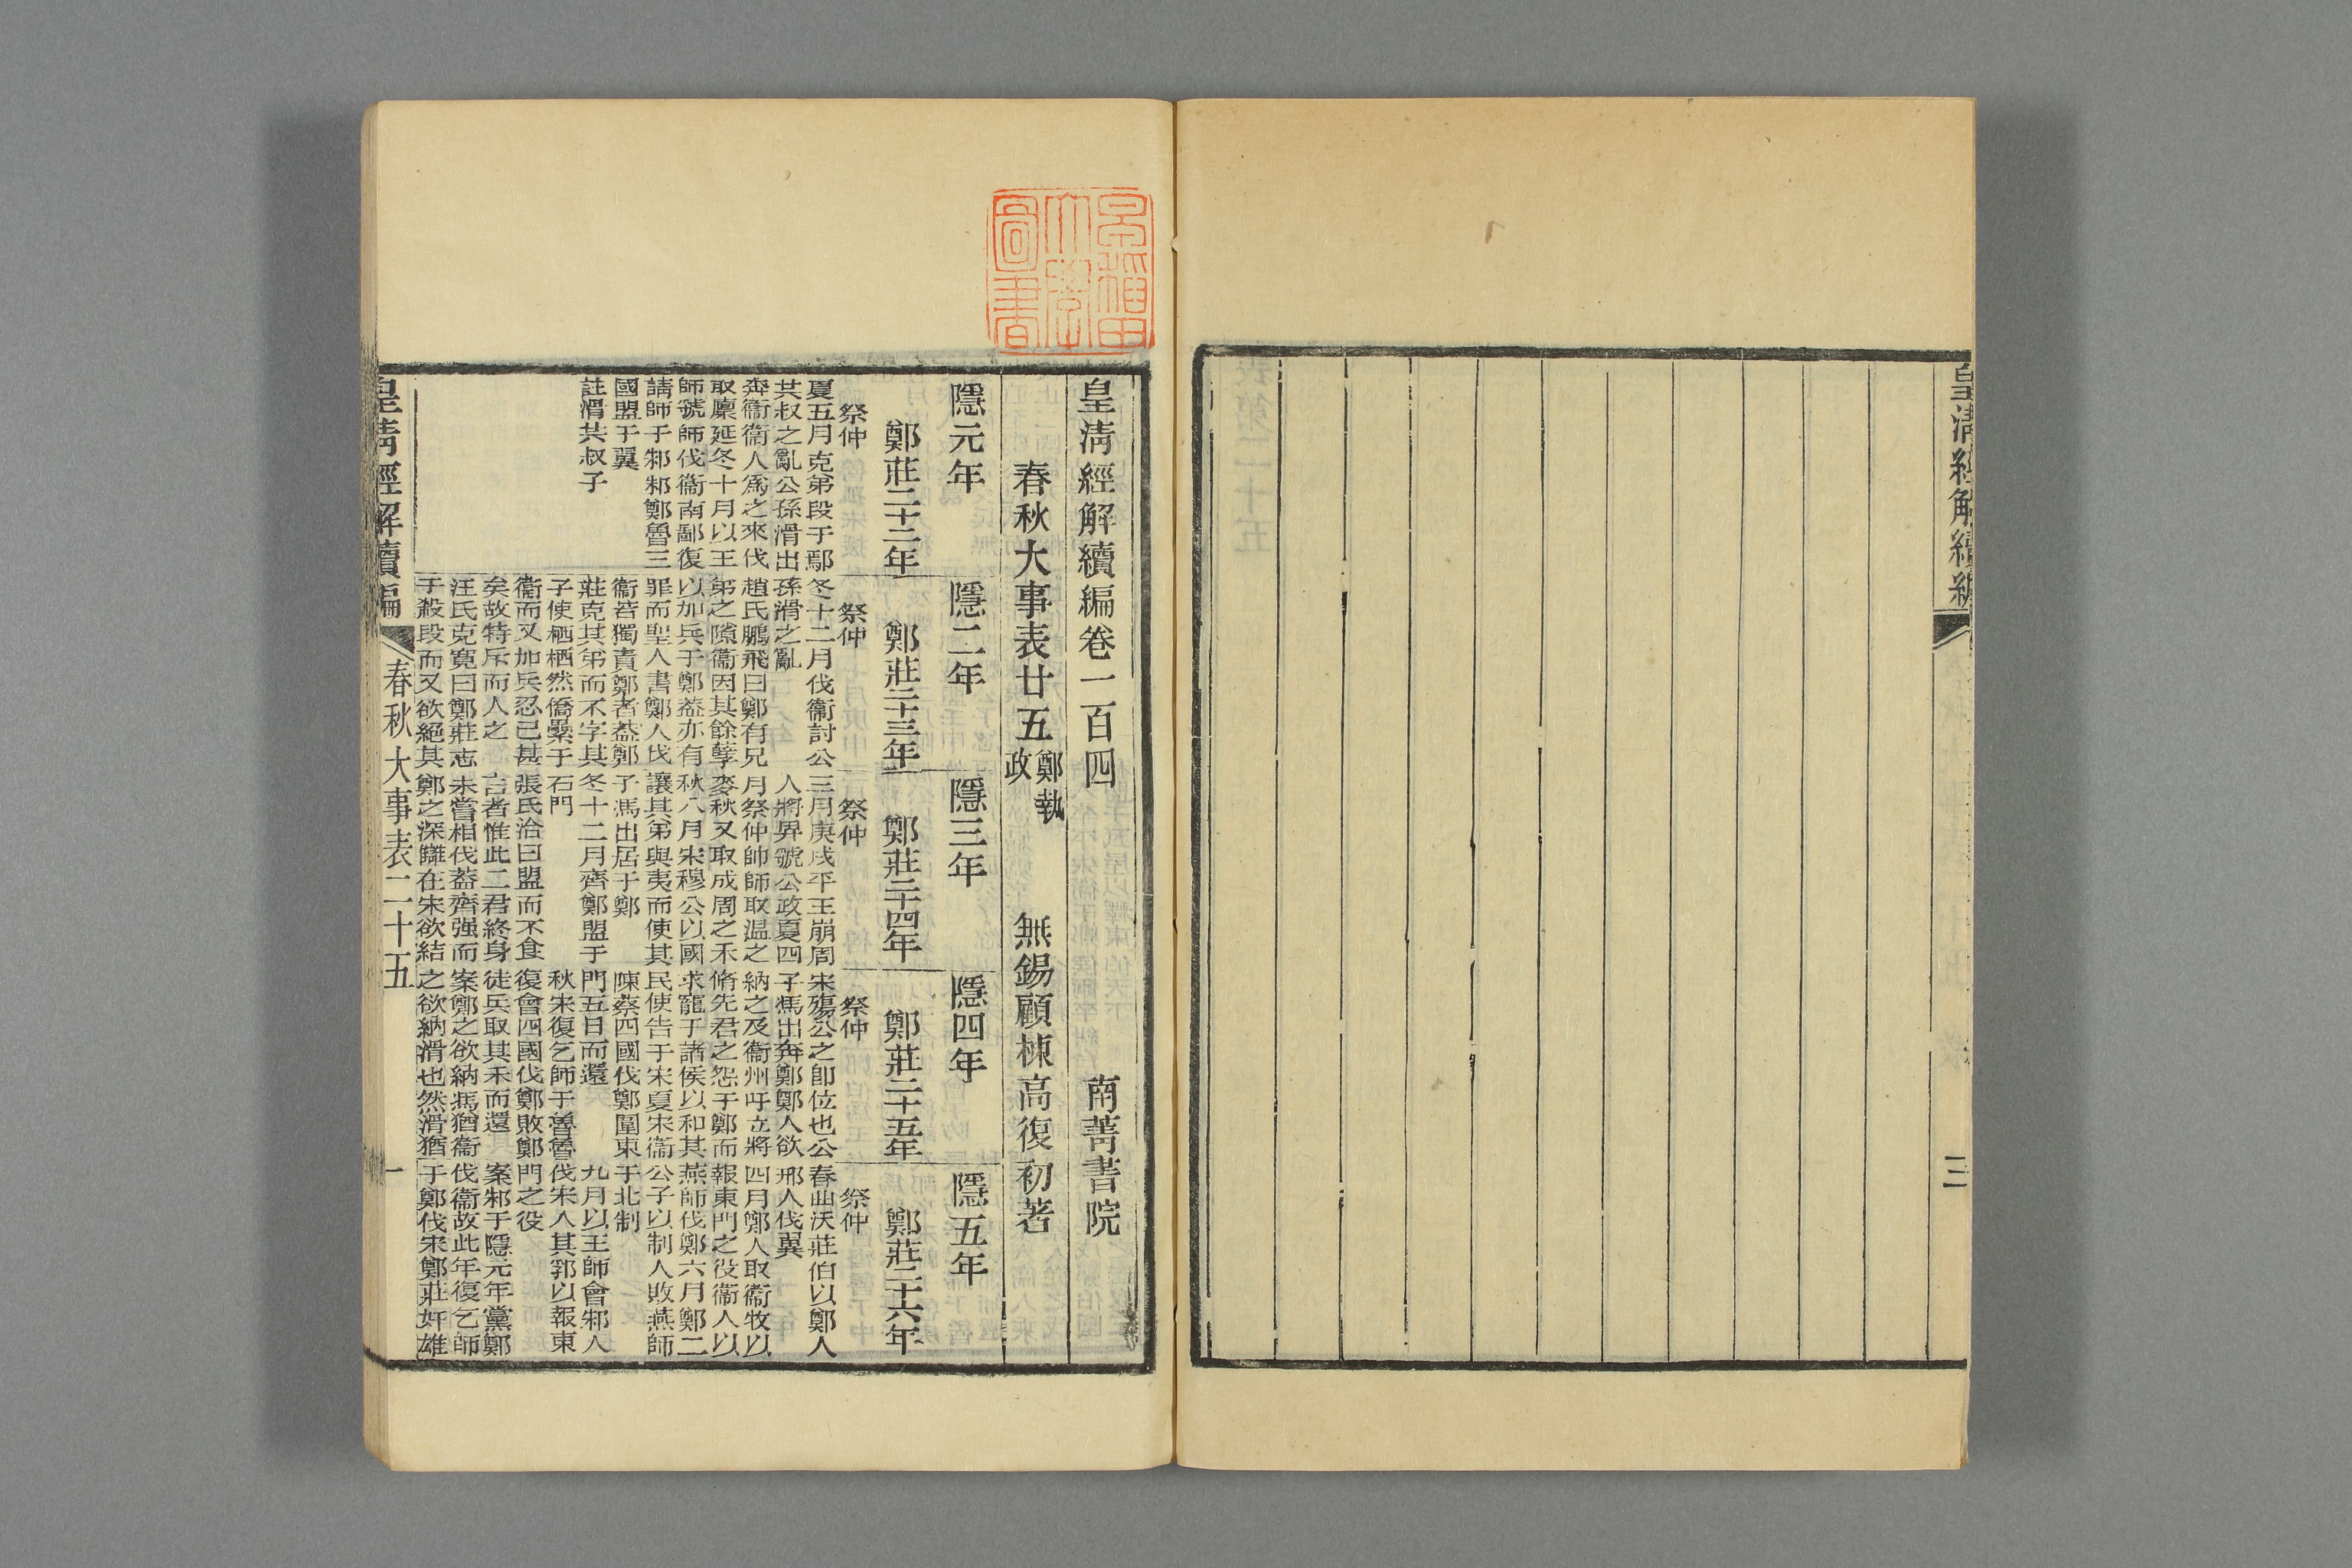 皇清經解續編
三
早稲田大學圖書
皇清經解續編卷一百四
南菁書院
春秋大事表廿五鄭執政
無錫顧棟高復初著
隱元年
鄭莊二十二年
祭仲
夏五月克弟段于鄢
共叔之亂公孫滑出
奔衞衞人爲之來伐
取廩延冬十月以王
師虢師伐衞南鄙復
請師于邾邾鄭魯三
國盟于翼
註滑共叔子
隱二年
鄭莊二十三年
祭仲
冬十二月伐衞討公
孫滑之亂
趙氏鵬飛曰鄭有兄
弟之隙衞因其餘孽
以加兵于鄭葢亦有
罪而聖人書鄭人伐
衞若獨責鄭者葢鄭
莊克其弟而不字其
子使栖栖然僑爨于
衞而又加兵忍已甚
矣故特斥而人之
汪氏克寬曰鄭莊志
于殺段而又欲絕其
隱三年
鄭莊二十四年
祭仲
三月庚戌平王崩周
人將畀虢公政夏四
月祭仲帥師取温之
麥秋又取成周之禾
秋八月宋穆公以國
讓其弟與夷而使其
子馮出居于鄭
冬十二月齊鄭盟于
石門
張氏洽曰盟而不食
言者惟此二君終身
未嘗相伐葢齊强而
鄭之深讎在宋欲結
隱四年
鄭莊二十五年
祭仲
宋殤公之卽位也公
子馮出奔鄭鄭人欲
納之及衞州吁立將
脩先君之怨于鄭而
求寵于諸侯以和其
民使告于宋夏宋衞
陳蔡四國伐鄭圍東
門五日而還
秋宋復乞師于魯魯
復會四國伐鄭敗鄭
徒兵取其禾而還
案鄭之欲納馮猶衞
之欲納滑也然滑猶
隱五年
鄭莊二十六年
祭仲
春曲沃莊伯以鄭人
邢人伐翼
四月鄭人取衞牧以
報東門之役衞人以
燕師伐鄭六月鄭二
公子以制人敗燕師
于北制
九月以王師會邾人
伐宋入其郛以報東
門之役
案邾于隱元年黨鄭
伐衞故此年復乞師
于鄭伐宋鄭莊奸雄
皇清經解續編
春秋大事表二十五
一